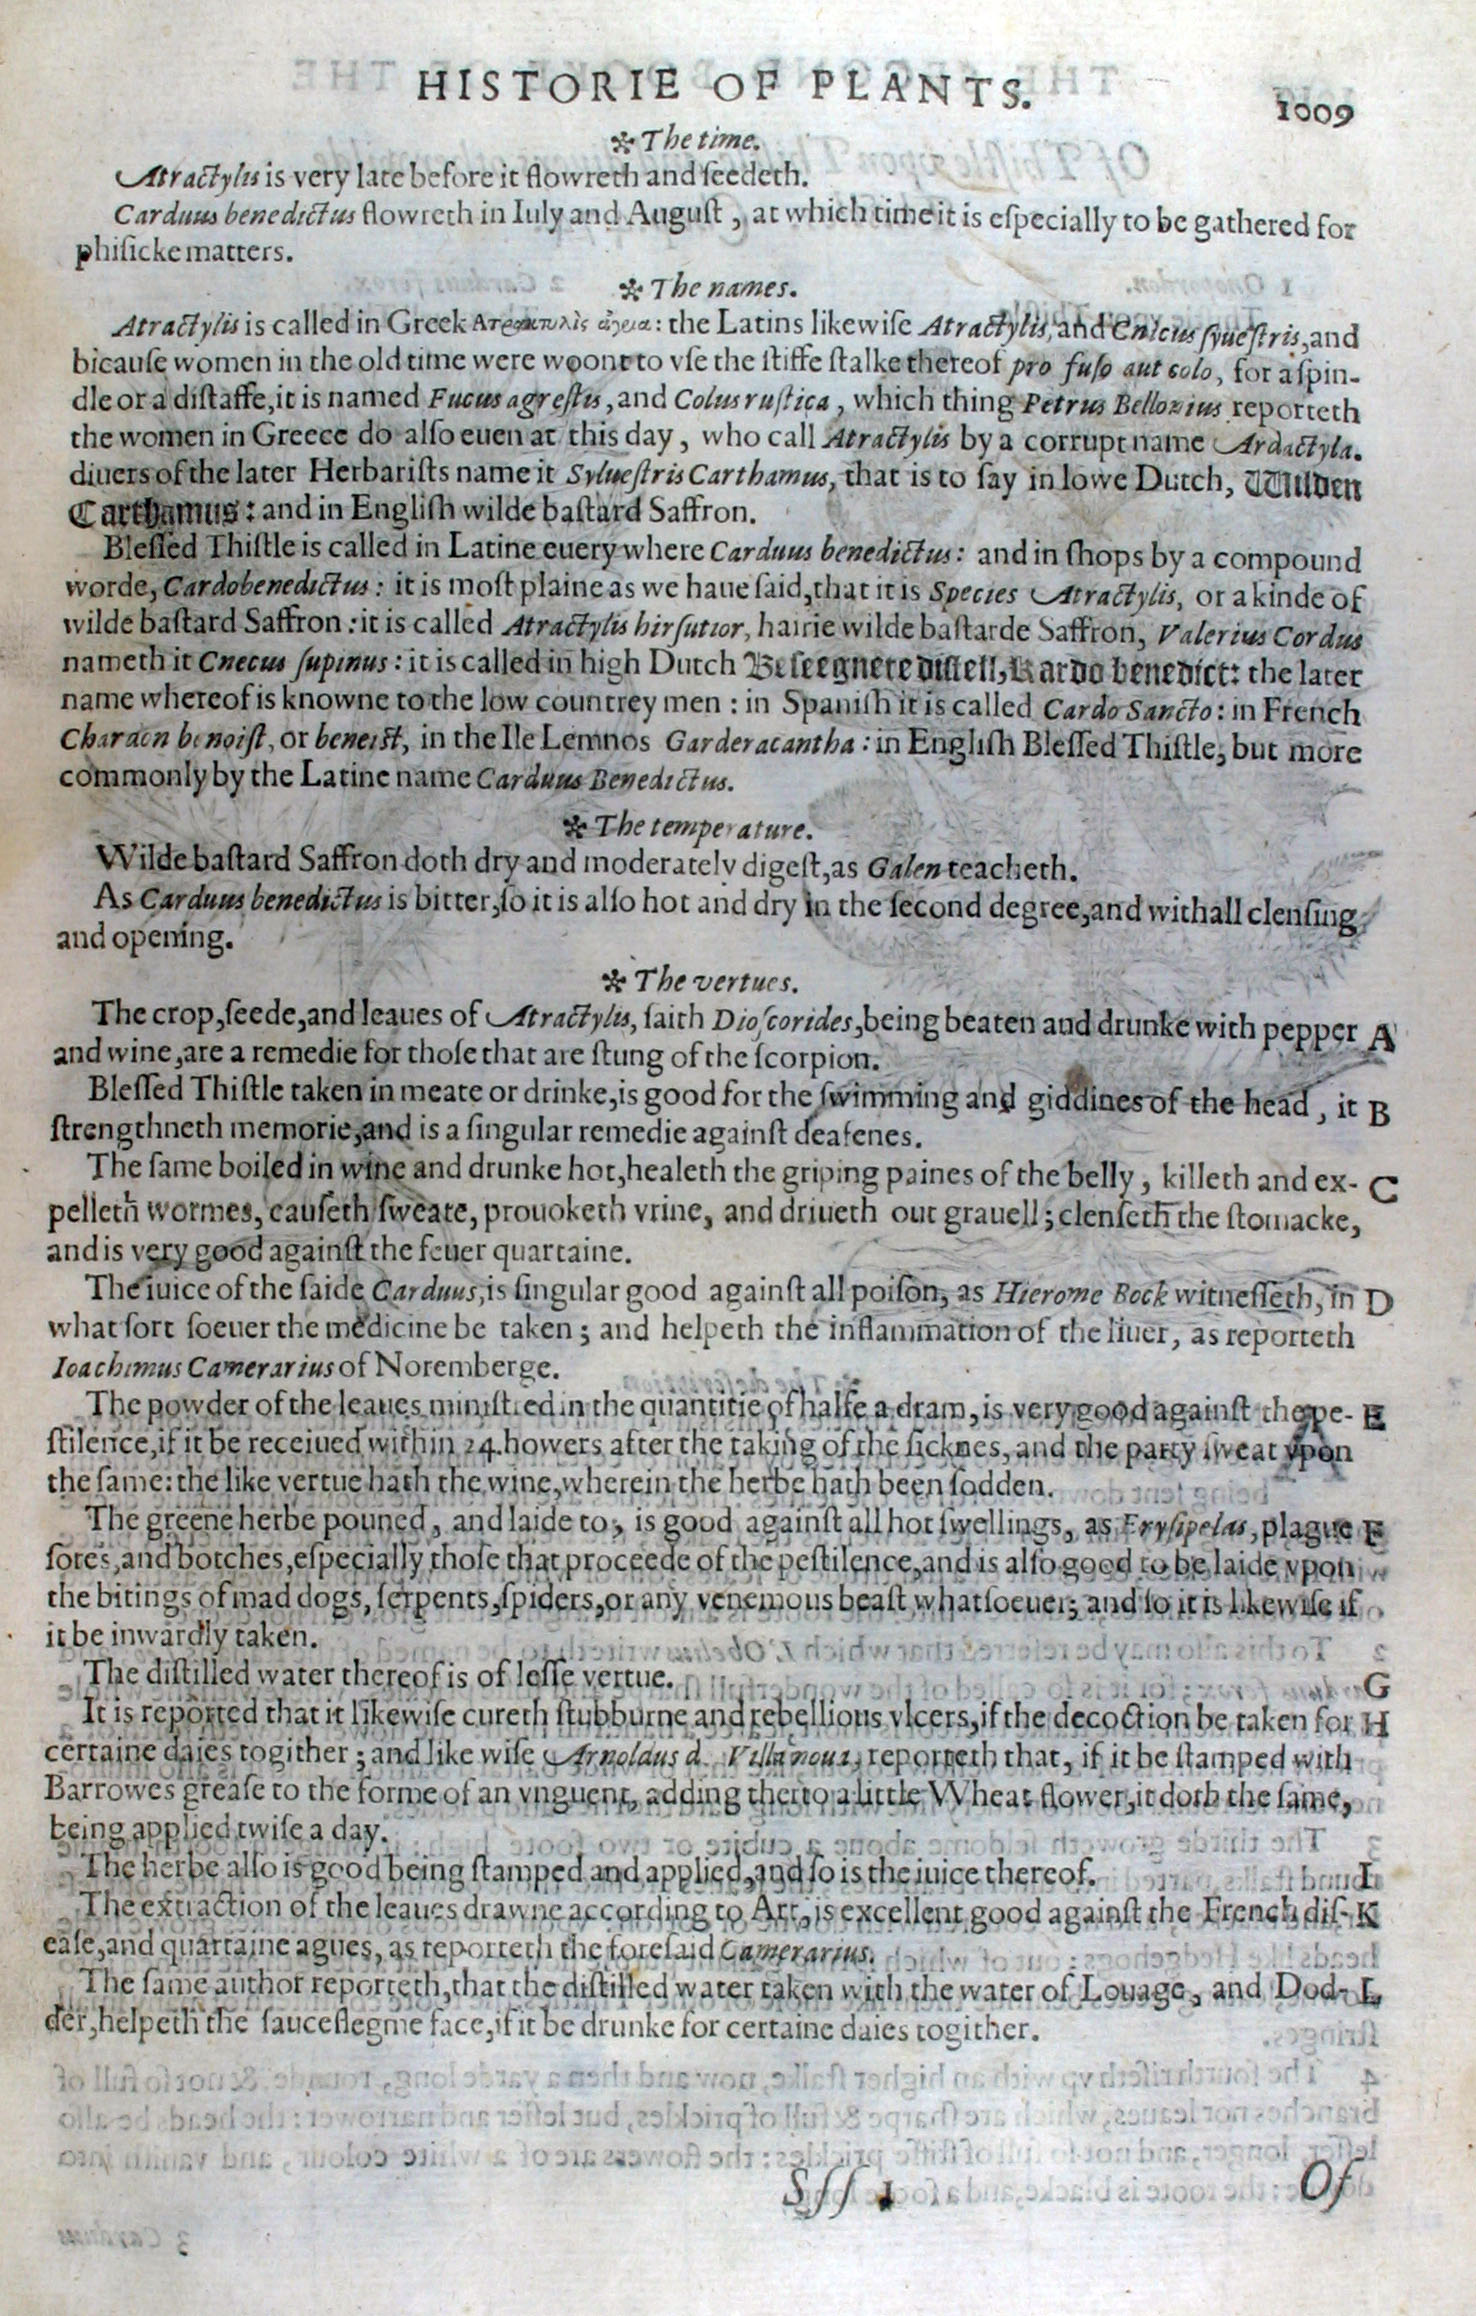 HISTORIE OF PLANTS. 1009
✲ The time.
Atractylis is very late before it flowreth and ſeedeth.
Carduus benedictus flowreth in Iuly and Auguſt, at which time it is eſpecially to be gathered for
phiſicke matters.
✲ The names.
Atractylis is called in Greek Ατρακτυλὶς ἀγεια: the Latins likewiſe Atractylis, and Cnicus ſyueſtris, and
bicauſe women in the old time were woont to vſe the ſtiffe ſtalke thereof pro fuſo aut colo, for a ſpin-
dle or a diſtaffe, it is named Fucus agreſtis, and Colus ruſtica, which thing Petrus Bellonius reporteth
the women in Greece do alſo euen at this day, who call Atractylis by a corrupt name Ardactyla.
diuers of the later Herbariſts name it Sylueſtris Carthamus, that is to ſay in lowe Dutch, Wilden
Carthamus: and in Engliſh wilde baſtard Saffron.
Bleſſed Thiſtle is called in Latine euery where Carduus benedictus: and in ſhops by a compound
worde, Cardobenedictus: it is moſt plaine as we haue ſaid, that it is Species Atractylis, or a kinde of
wilde baſtard Saffron: it is called Atractylis hirſutior, hairie wilde baſtarde Saffron, Valerius Cordus
nameth it Cnecus ſupinus: it is called in high Dutch Beſeegnete diſtell, Kardo benedict: the later
name whereof is knowne to the low countrey men: in Spaniſh it is called Cardo Sancto: in French
Chardon benoiſt, or beneiſt, in the Ile Lemnos Garderacantha: in Engliſh Bleſſed Thiſtle, but more
commonly by the Latine name Carduus Benedictus.
✲ The temperature.
Wilde baſtard Saffron doth dry and moderately digeſt, as Galen teacheth.
As Carduus benedictus is bitter, ſo it is alſo hot and dry in the ſecond degree, and withall clenſing
and opening.
✲ The vertues.
The crop, ſeede, and leaues of Atractylis, ſaith Dioſcorides, being beaten and drunke with pepper A
and wine, are a remedie for thoſe that are ſtung of the ſcorpion.
Bleſſed Thiſtle taken in meate or drinke, is good for the ſwimming and giddines of the head, it B
ſtrengthneth memorie, and is a ſingular remedie againſt deafenes.
The ſame boiled in wine and drunke hot, healeth the griping paines of the belly, killeth and ex- C
pelleth wormes, cauſeth ſweate, prouoketh vrine, and driueth out grauell; clenſeth the ſtomacke,
and is very good againſt the feuer quartaine.
The iuice of the ſaide Carduus, is ſingular good againſt all poiſon, as Hierome Bock witneſſeth, in D
what ſort ſoeuer the medicine be taken; and helpeth the inflammation of the liuer, as reporteth
Ioachimus Camerarius of Noremberge.
The powder of the leaues miniſtred in the quantitie of halfe a dram, is very good againſt the pe- E
ſtilence, if it be receiued within 24. howers after the taking of the ſicknes, and the party ſweat vpon
the ſame: the like vertue hath the wine, wherein the herbe hath been ſodden.
The greene herbe pouned, and laide to, is good againſt all hot ſwellings, as Eryſipelas, plague F
ſores, and botches, eſpecially thoſe that proceede of the peſtilence, and is alſo good to be laide vpon
the bitings of mad dogs, ſerpents, ſpiders, or any venemous beaſt whatſoeuer; and ſo it is likewiſe if
it be inwardly taken.
The diſtilled water thereof is of leſſe vertue. G
It is reported that it likewiſe cureth ſtubburne and rebellious vlcers, if the decoction be taken for H
certaine daies togither; and like wiſe Arnoldus d. Villanoua, reporteth that, if it be ſtamped with
Barrowes greaſe to the forme of an vnguent, adding therto a little Wheat flower, it doth the ſame,
being applied twiſe a day.
The herbe alſo is good being ſtamped and applied, and ſo is the iuice thereof. I
The extraction of the leaues drawne according to Art, is excellent good againſt the French diſ- K
eaſe, and quartaine agues, as reporteth the foreſaid Camerarius.
The ſame author reporteth, that the diſtilled water taken with the water of Louage, and Dod- L
der, helpeth the ſauceflegme face, if it be drunke for certaine daies togither.
Sſſſ 1 Of